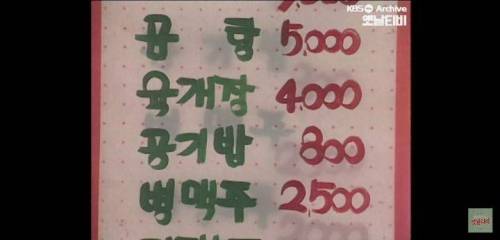 KBS Archive
옛날티비
곰 탕 5,000
육개장 4,000
공기밥 800
병맥주 2,500